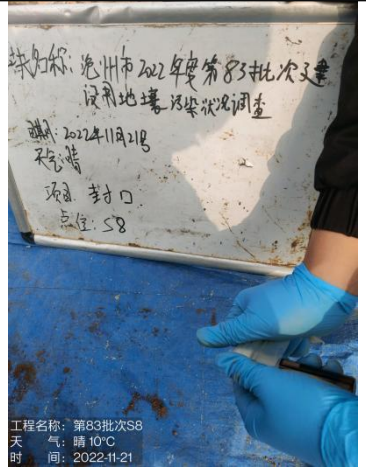 块名称：沧州市2022年度第83批次建
设用地土壤污染状况调查
日期：2022年11月21号
天气：晴
项目：封口
点位：S8
工程名称：第83批次S8
天 气：晴 10℃
时 间：2022-11-21